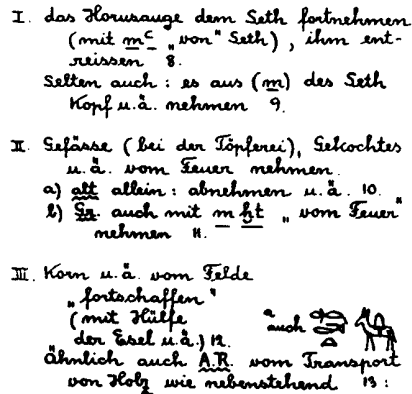 I. das Horusauge dem Seth fortnehmen
(mit mꜥ „von" Seth), ihm ent-
reissen 8.
Selten auch: es aus (m) des Seth
Kopf u.ä. nehmen 9.
II. Gefässe (bei der Töpferei), Gekochtes
u.ä. vom Feuer nehmen.
a) alt allein: abnehmen u.ä. 10.
b) Gr. auch mit m ḫt „vom Feuer"
nehmen 11.
III. Korn u.ä. vom Felde
„fortschaffen"
(mit Hülfe
der Esel u.ä.) 12.
a auch
Ähnlich auch A.R. vom Transport
von Holz wie nebenstehend 13: